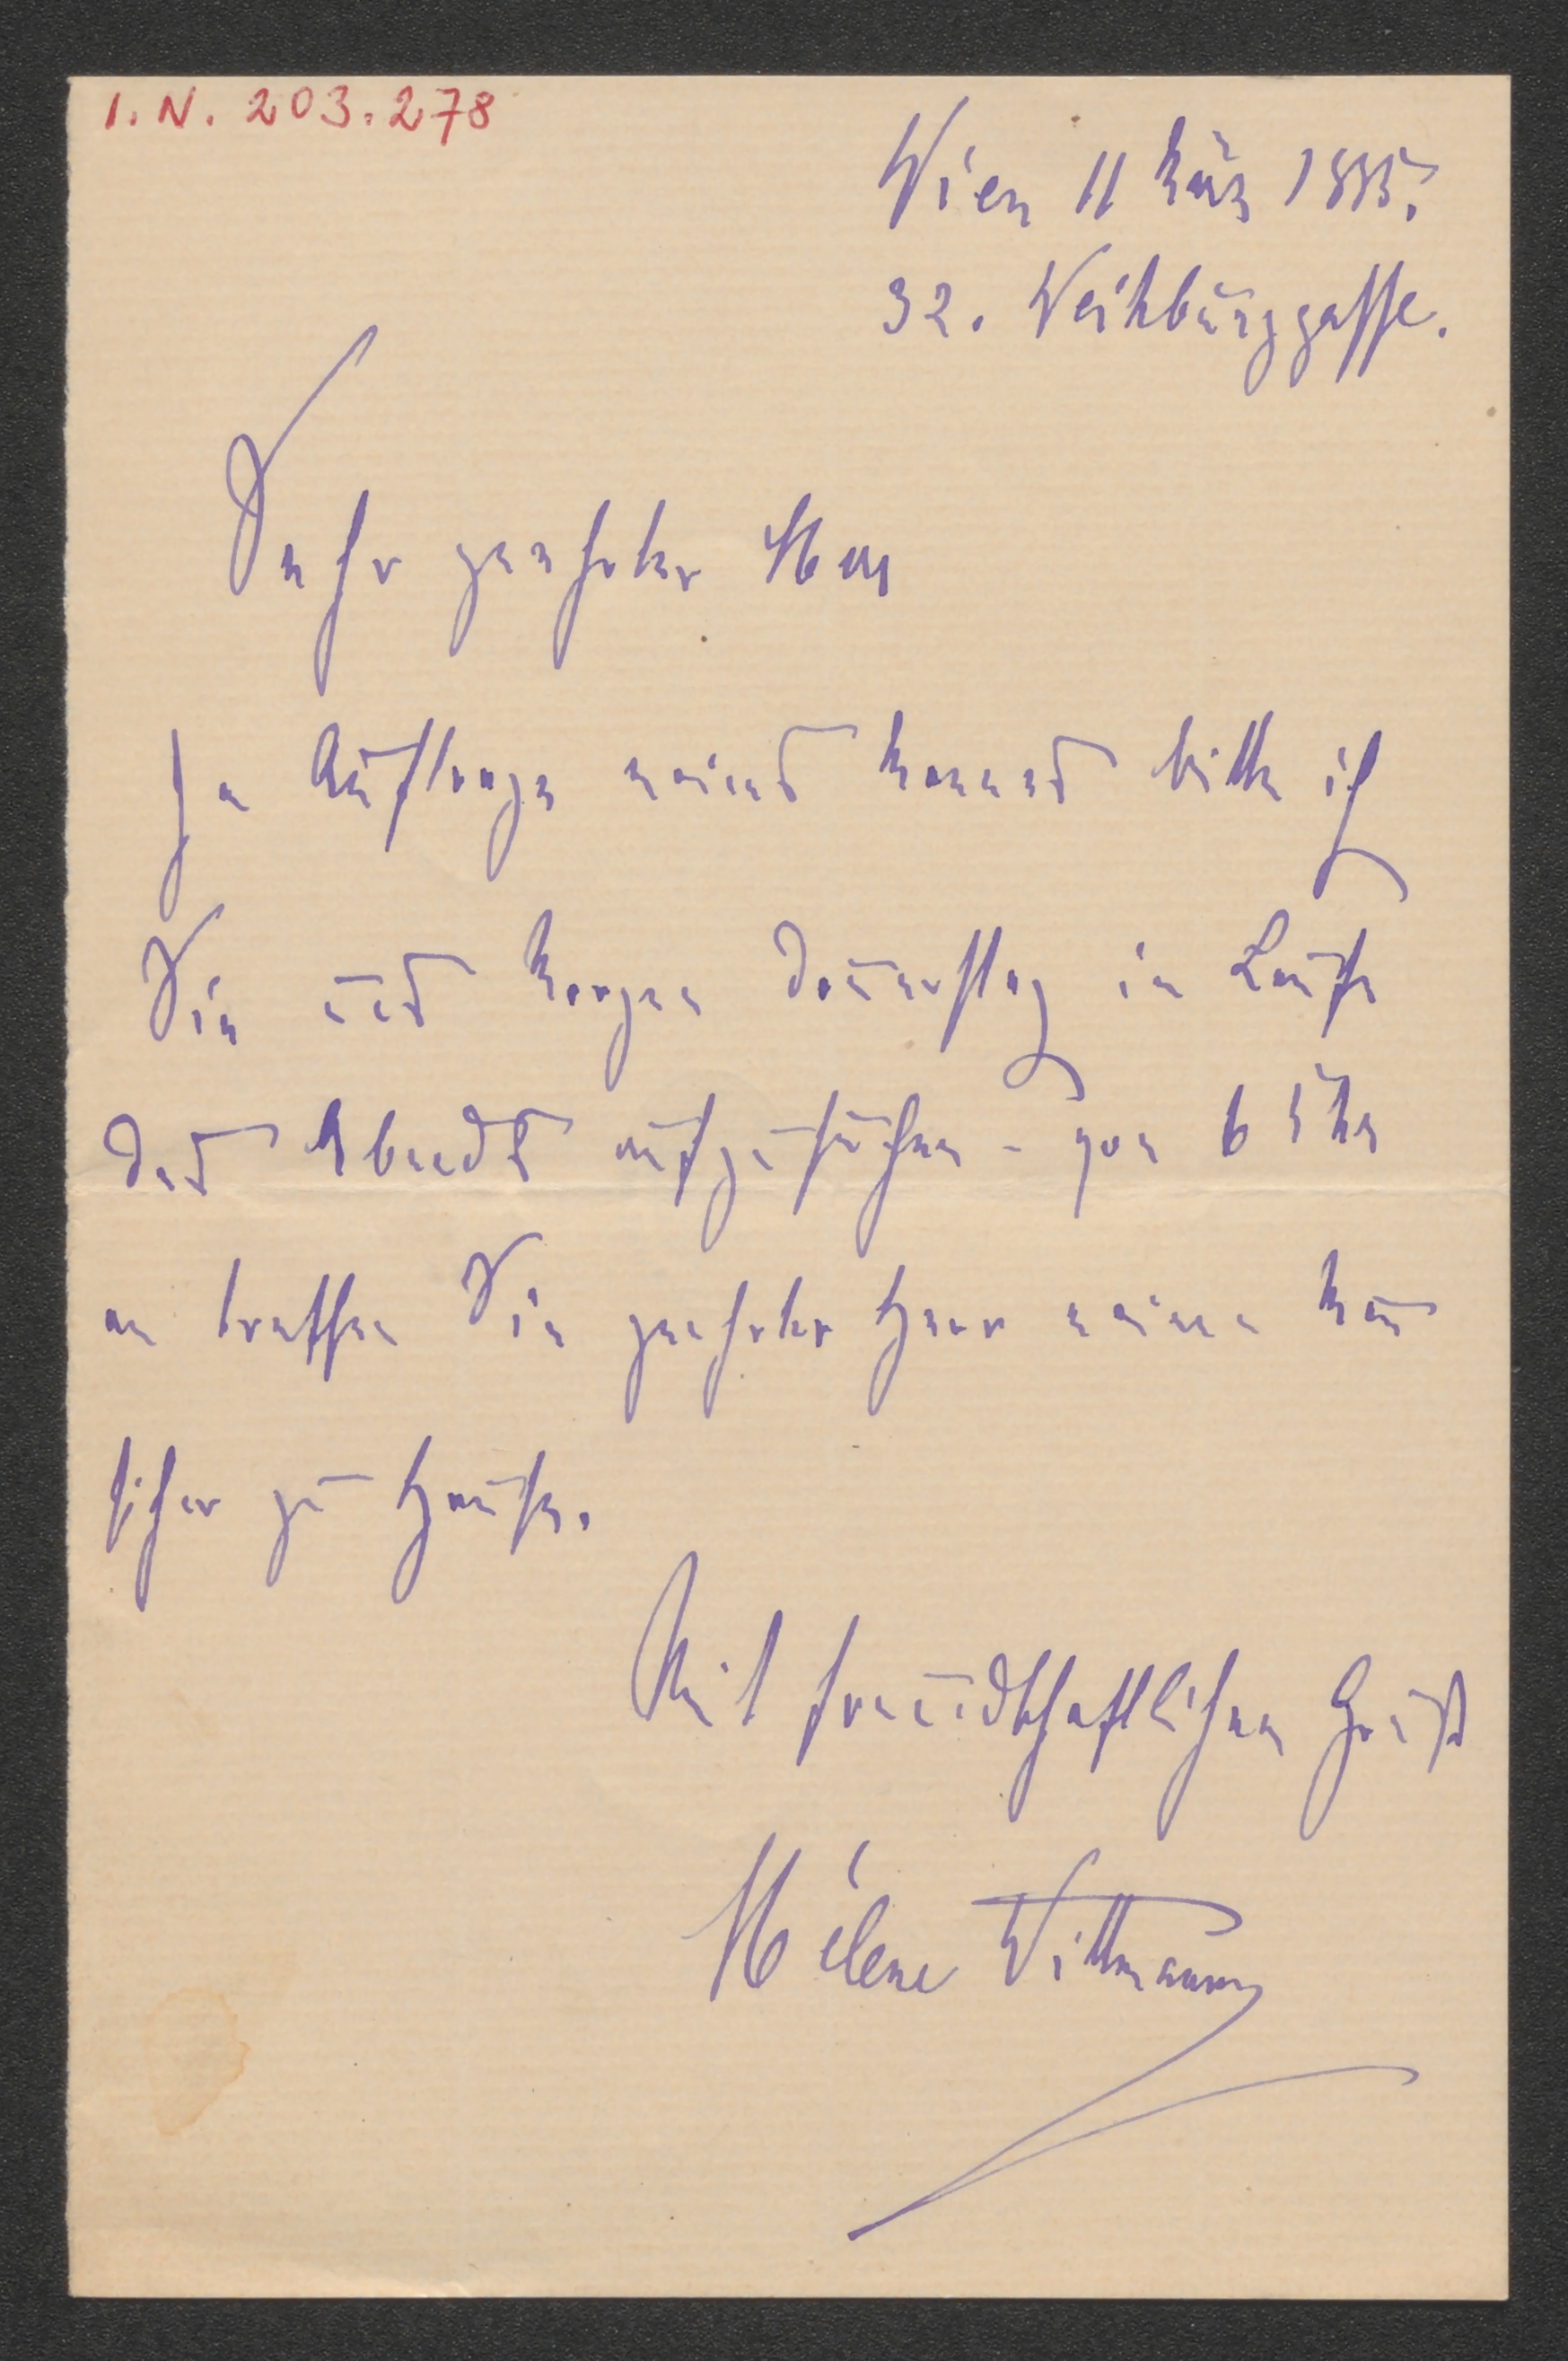 I. N. 203.278
Wien 11 März 1885.
32. Weihburggasse.
Sehr geehrter Herr
Im Auftrage meines Mannes bitte ich
Sie uns Morgen Donnerstag im Laufe
des Abends aufzusuchen - von 6 Uhr
an treffen Sie geehrter Herr meinen Man̄
sicher zu Hause.
Mit freundschaftlichem Gruß
Hélene Wittmann